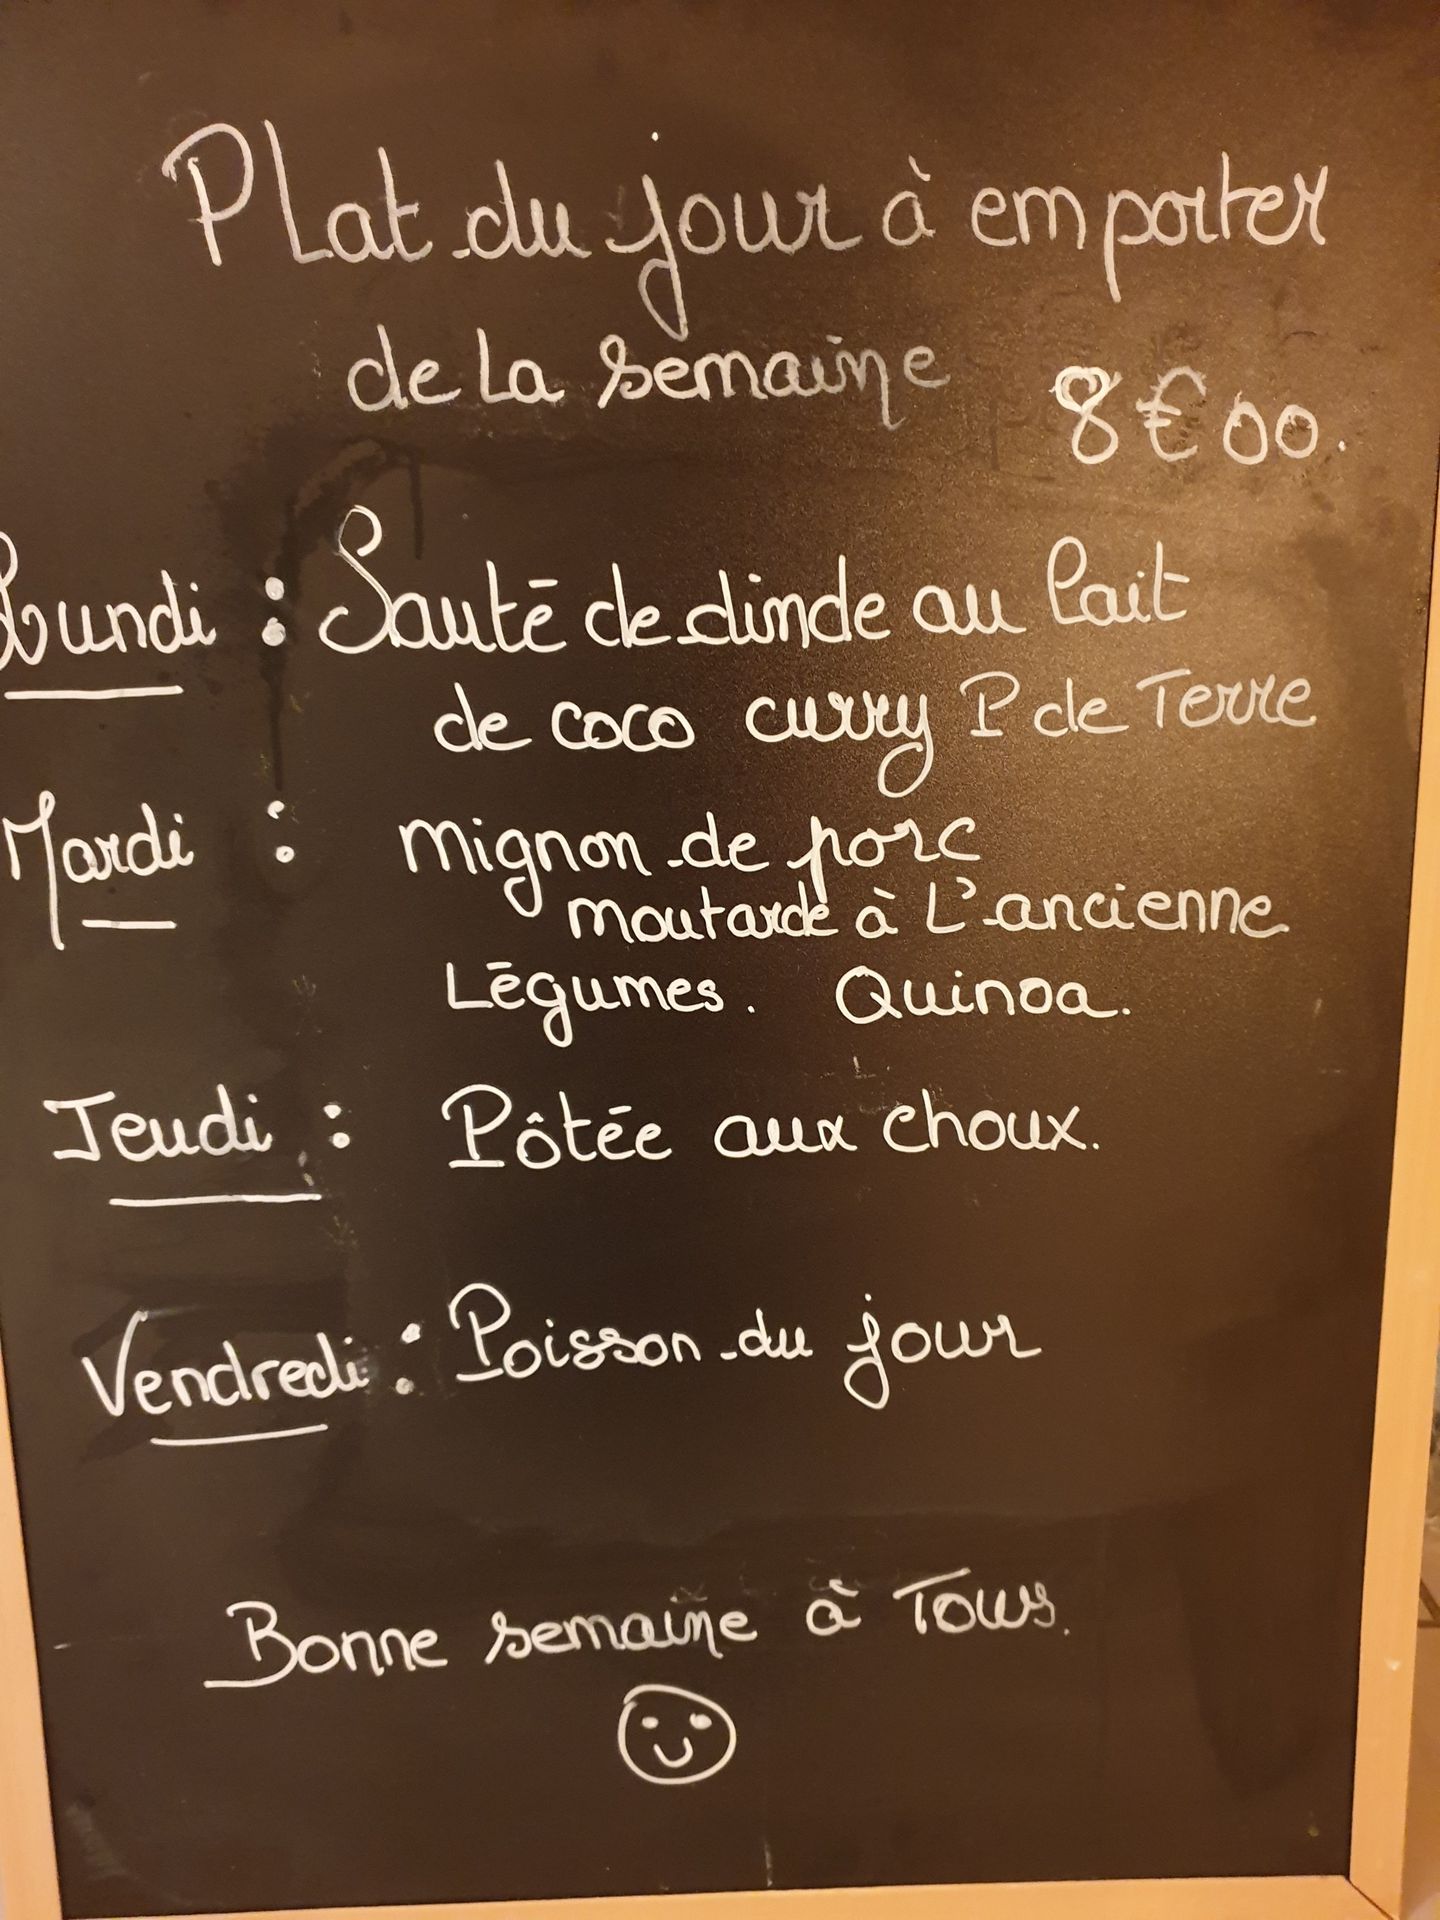 Plat du jour à emporter
de la semaine 8€00.
Lundi : Sauté de dinde au lait
de coco curry P de Terre
Mardi : mignon de porc
moutarde à L'ancienne
Légumes. Quinoa.
Jeudi : Pôtée aux choux.
Vendredi : Poisson du jour
Bonne semaine à Tous.